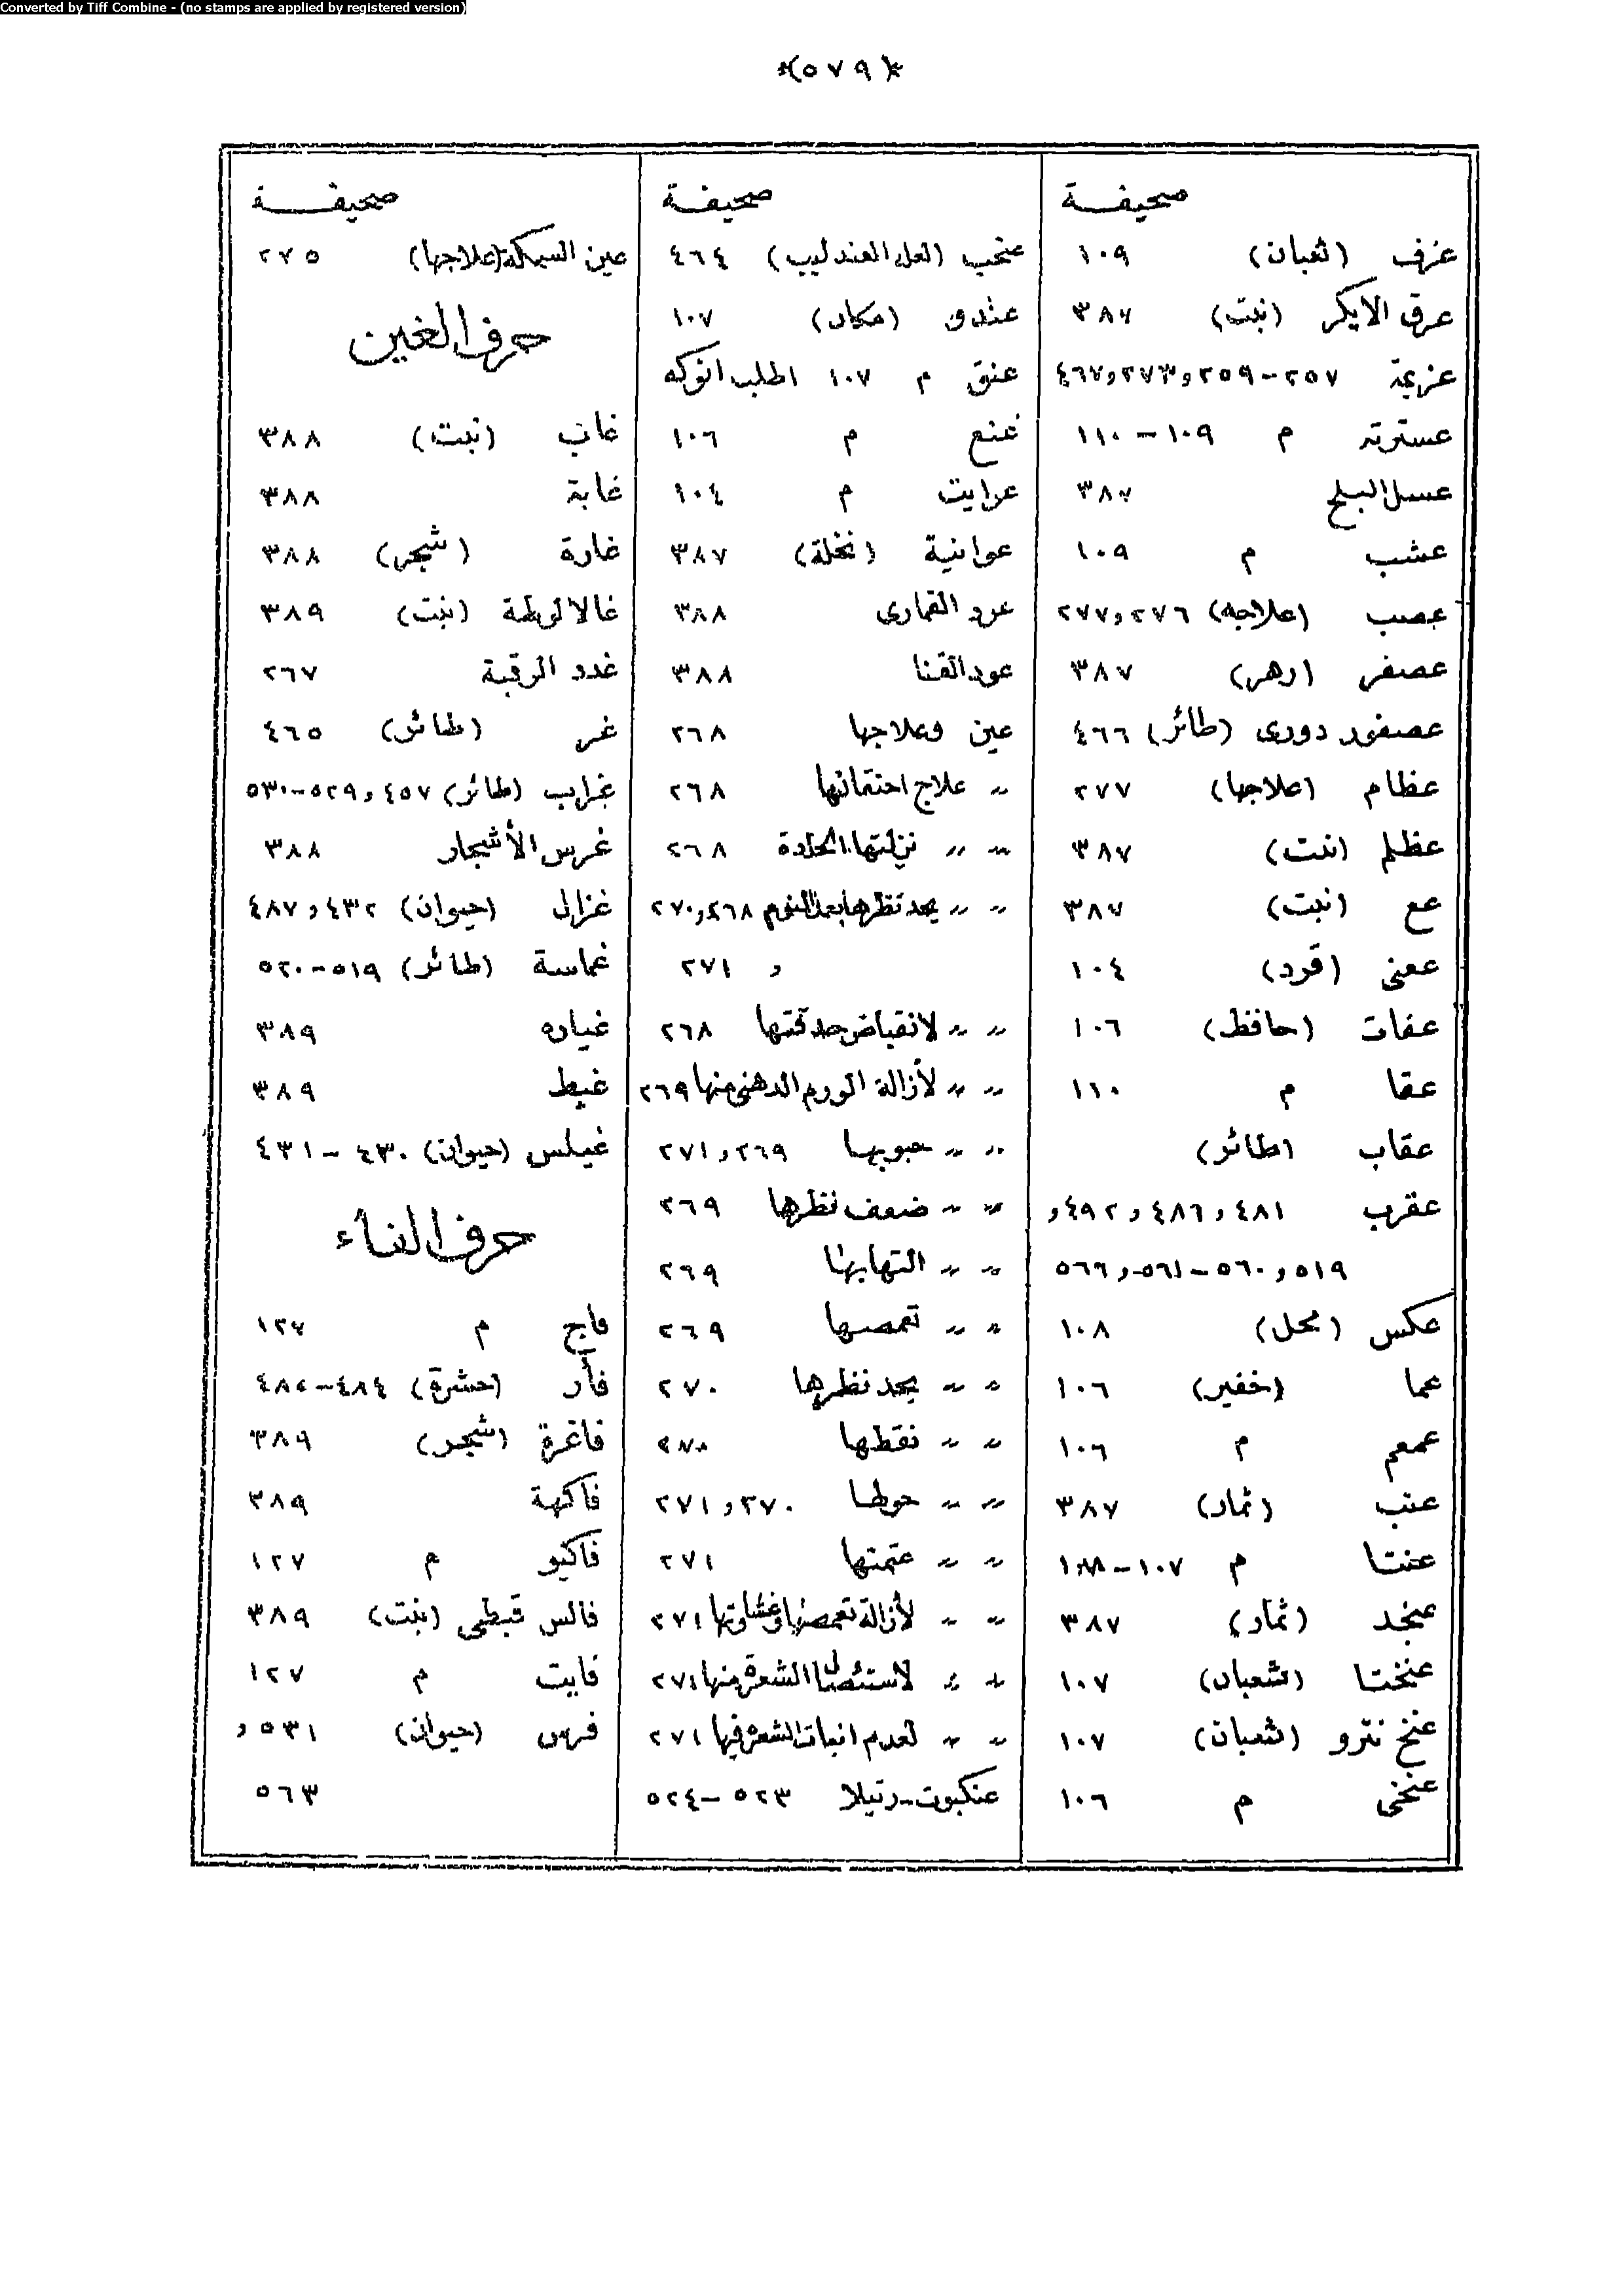 Converted by Tiff Combine - (no stamps are applied by registered version)
*(٥٧٩)*
صحيفة
عزف (ثعبان) ١٠٩
عرق الايكر (نبت) ٣٨٧
عزيمة ٢٥٧-٢٥٩و٢٧٣و٤٦٧
عسترتة م ١٠٩-١١٠
عسل البلح ٣٨٧
عشب م ١٠٩
عصب (علاجه) ٢٧٦و٢٧٧
عصفر (زهر) ٣٨٧
عصفور دورى (طائر) ٤٦٦
عظام (علاجها) ٢٧٧
عظلم (نبت) ٣٨٧
عع (نبت) ٣٨٧
عفنى (قرد) ١٠٤
عفات (حافظ) ١٠٦
عقا م ١١٠
عقاب (طائر)
عقرب ٤٨١و٤٨٦و٤٩٢و
٥١٩و٥٦٠-٥٦١و٥٦٦
عكس (محل) ١٠٨
عما (خفير) ١٠٦
عمعم م ١٠٦
عنب (ثمار) ٣٨٧
عنتا م ١٠٧-١٠٨
عنجد (ثمار) ٣٨٧
عنختا (ثعبان) ١٠٧
عنخ نترو (ثعبان) ١٠٧
عنخى م ١٠٦
صحيفة
عنجب (لعله العندليب) ٤٦٤
عندو (مكان) ١٠٧
عنق م ١٠٧ اطلب انوكه
عنع م ١٠٦
عرايت م ١٠٤
عوانية (نخلة) ٣٨٧
عود القمارى ٣٨٨
عود القنا ٣٨٨
عين وعلاجها ٢٦٨
〃 علاج احتقانها ٢٦٨
〃 〃 نزلتها الحادة ٢٦٨
〃 〃 يحد نظرها بعد النوم ٢٦٨و٢٧٠
و ٢٧١
〃 〃 لانقباض حدقتها ٢٦٨
〃 〃 لأزالة الورم الدهنى منها ٢٦٩
〃 〃 حبوبها ٢٦٩و٢٧١
〃 〃 ضعف نظرها ٢٦٩
〃 〃 التهابها ٢٦٩
〃 〃 تعمصها ٢٦٩
〃 〃 يحد نظرها ٢٧٠
〃 〃 نقطها ٢٧٠
〃 〃 حولها ٢٧٠و٢٧١
〃 〃 عتمتها ٢٧١
〃 〃 لأزالة تعمصها وغشاوتها ٢٧١
〃 〃 لاستئصال الشعرة منها ٢٧١
〃 〃 لعدم انبات الشعر فيها ٢٧١
عنكبوت-رتيلا ٥٢٣-٥٢٤
صحيفة
عين السمكة (علاجها) ٢٧٥
حرف الغين
غاب (نبت) ٣٨٨
غابة ٣٨٨
غارة (شجر) ٣٨٨
غالالوطة (نبت) ٣٨٩
غدد الرقبة ٢٦٧
غر (طائر) ٤٦٥
غراب (طائر) ٤٥٧و٥٢٩-٥٣٠
غرس الأشجار ٣٨٨
غزال (حيوان) ٤٣٢و٤٨٧
غماسة (طائر) ٥١٩-٥٢٠
غياره ٣٨٩
غيط ٣٨٩
غيلس (حيوان) ٤٣٠-٤٣١
حرف الفاء
فاج م ١٢٧
فأر (حشرة) ٤٨٤-٤٨٥
فاغرة (شجر) ٣٨٩
فاكهة ٣٨٩
فاكيو م ١٢٧
فالس قبطى (نبت) ٣٨٩
فايت م ١٢٧
فرس (حيوان) ٥٣١و
٥٦٣